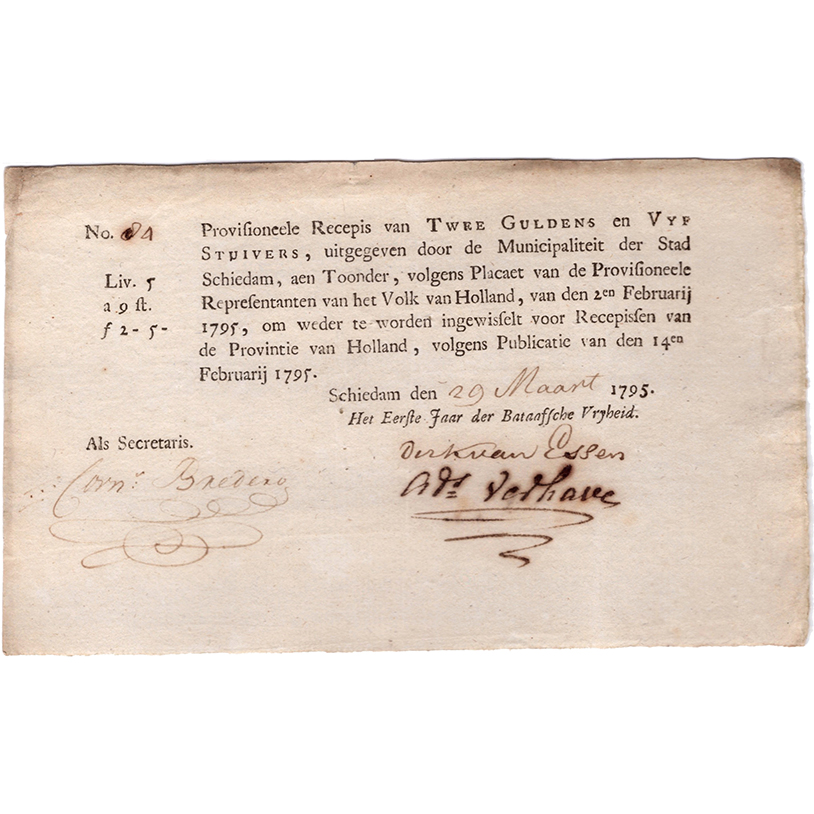 No. 84
Provisioneele Recepis van TWEE GULDENS en VYF
STUIVERS, uitgegeven door de Municipaliteit der Stad
Liv. 5
Schiedam, aen Toonder, volgens Placaet van de Provisioneele
a 9 st.
Representanten van het Volk van Holland, van den 2en Februarij
f 2-5-
1795, om weder te worden ingewisselt voor Recepissen van
de Provintie van Holland, volgens Publicatie van den 14en
Februarij 1795.
Schiedam den 29 Maart 1795.
Het Eerste Jaar der Bataafsche Vryheid.
Als Secretaris.
Dirk van Essen
Corns. Bredero
Ads. Verhave